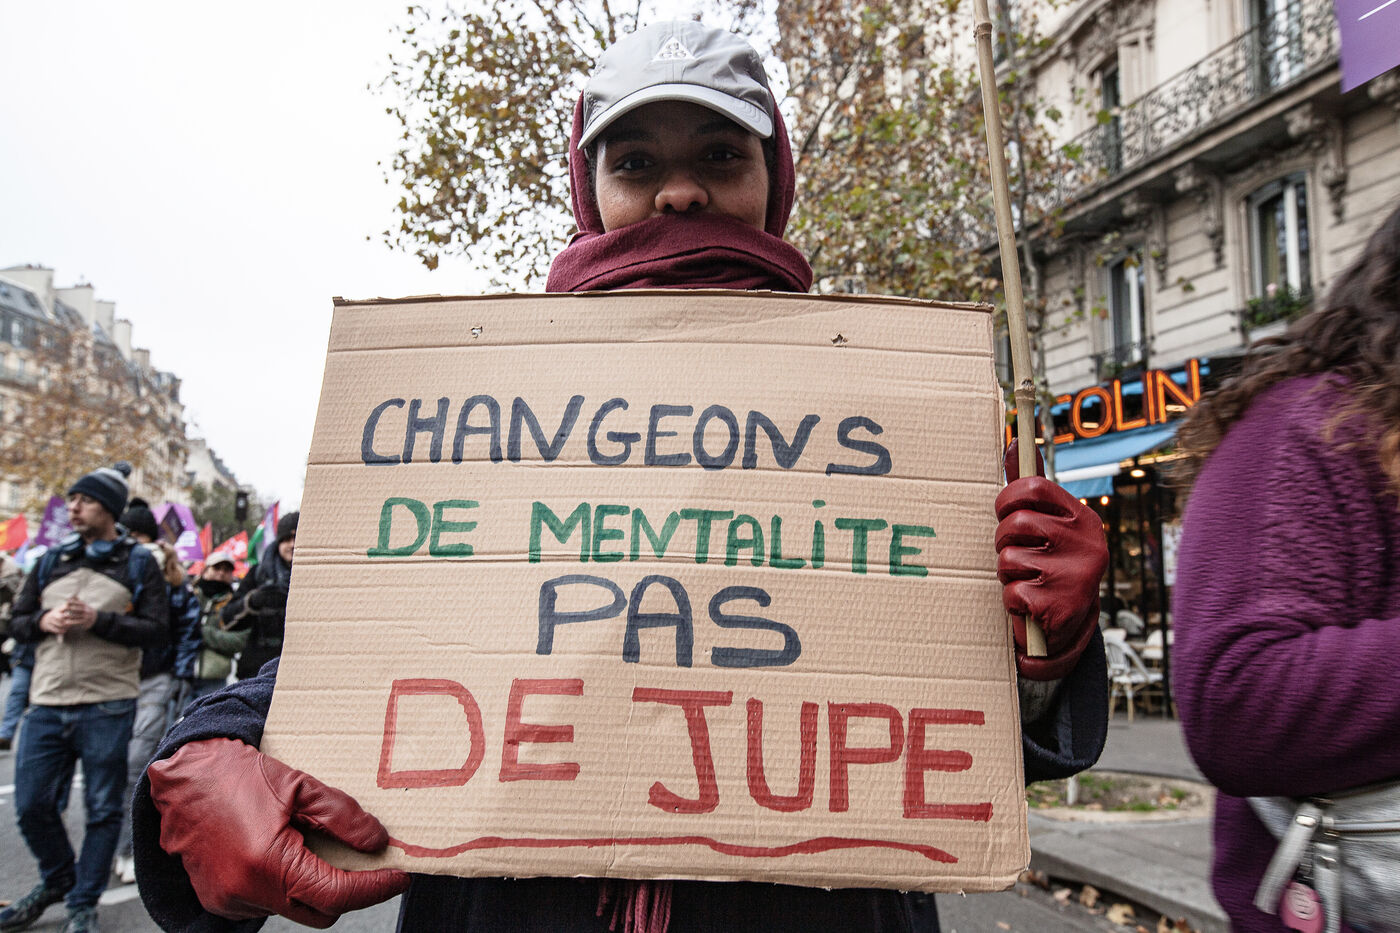 CHANGEONS
DE MENTALiTE
PAS
DE JUPE
COLIN